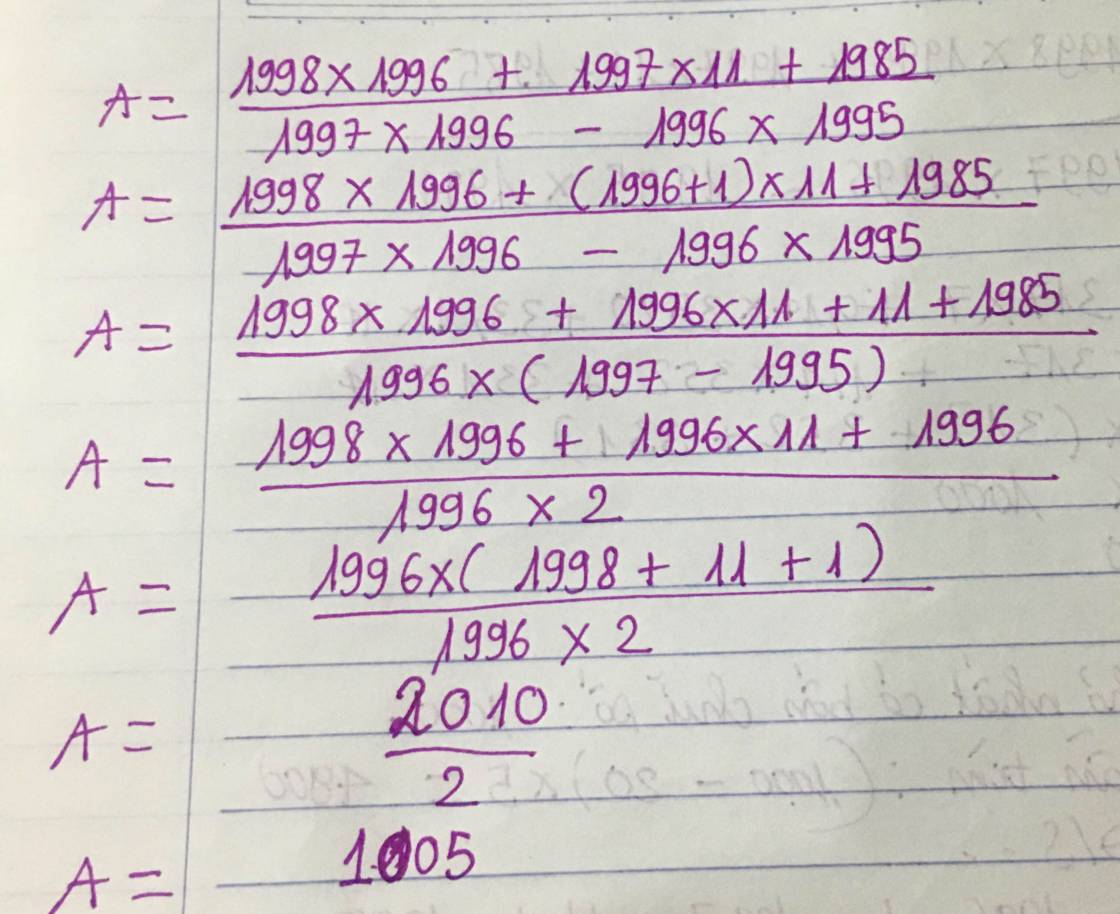 A = (1998 x 1996 + 1997 x 11 + 1985) / (1997 x 1996 - 1996 x 1995)
A = (1998 x 1996 + (1996+1) x 11 + 1985) / (1997 x 1996 - 1996 x 1995)
A = (1998 x 1996 + 1996 x 11 + 11 + 1985) / (1996 x (1997 - 1995))
A = (1998 x 1996 + 1996 x 11 + 1996) / (1996 x 2)
A = (1996 x (1998 + 11 + 1)) / (1996 x 2)
A = 2010 / 2
A = 1005